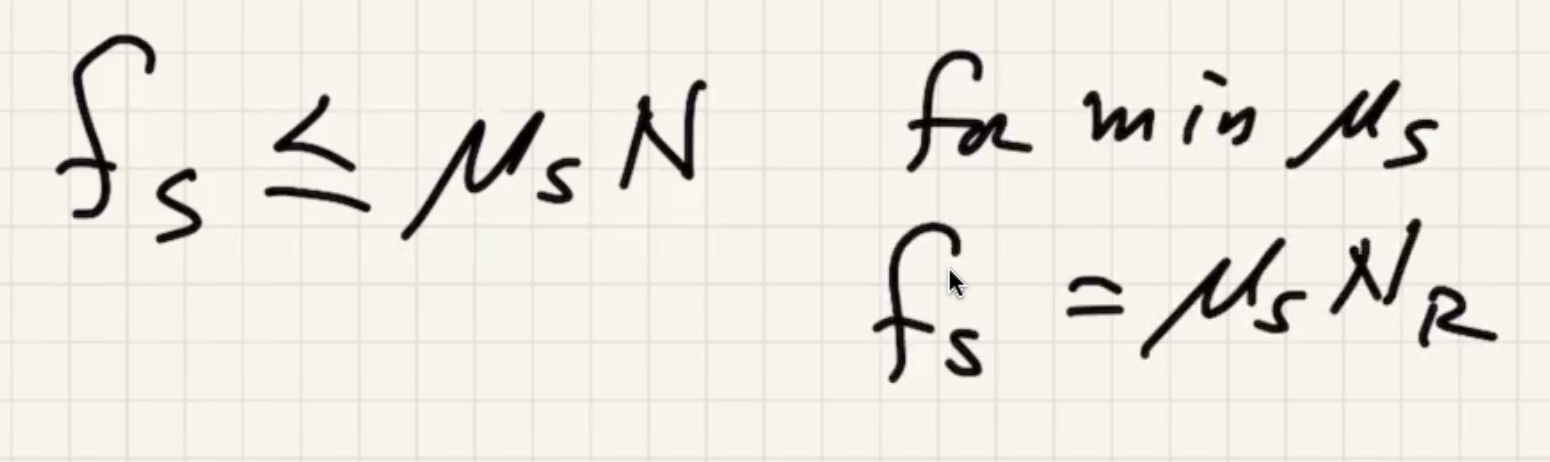 f_s ≤ μ_s N for min μ_s
f_s = μ_s N_R